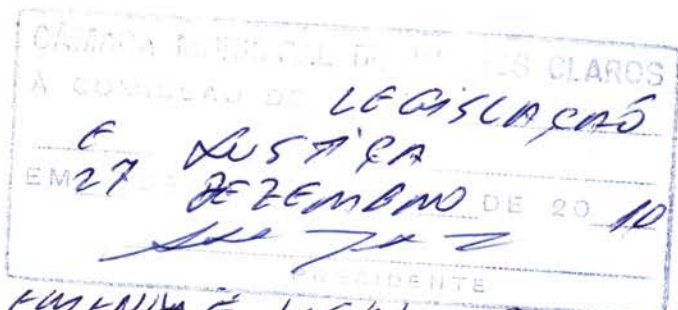 CÂMARA MUNICIPAL DE CLAROS
À COMISSÃO DE LEGISLAÇÃO
E JUSTIÇA
EM 27 DEZEMBRO DE 20 10
PRESIDENTE
EMENDA É LEGAL